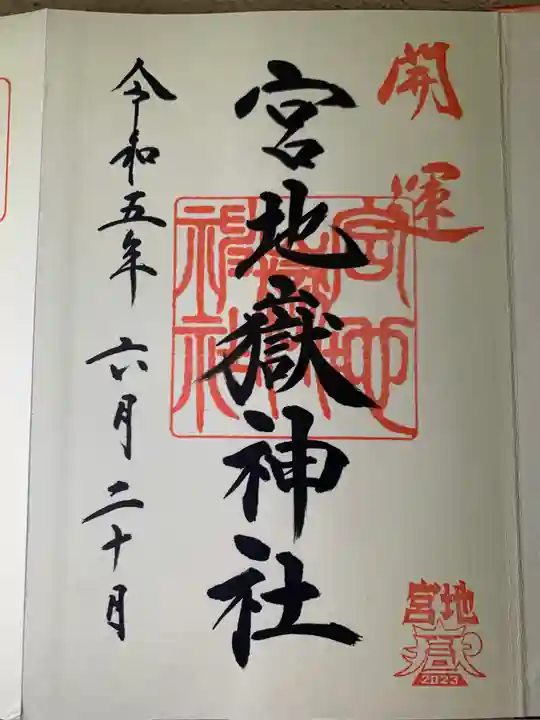 開運
宮地嶽神社
宮地嶽神社
令和五年 六月二十日
宮地
嶽
2023